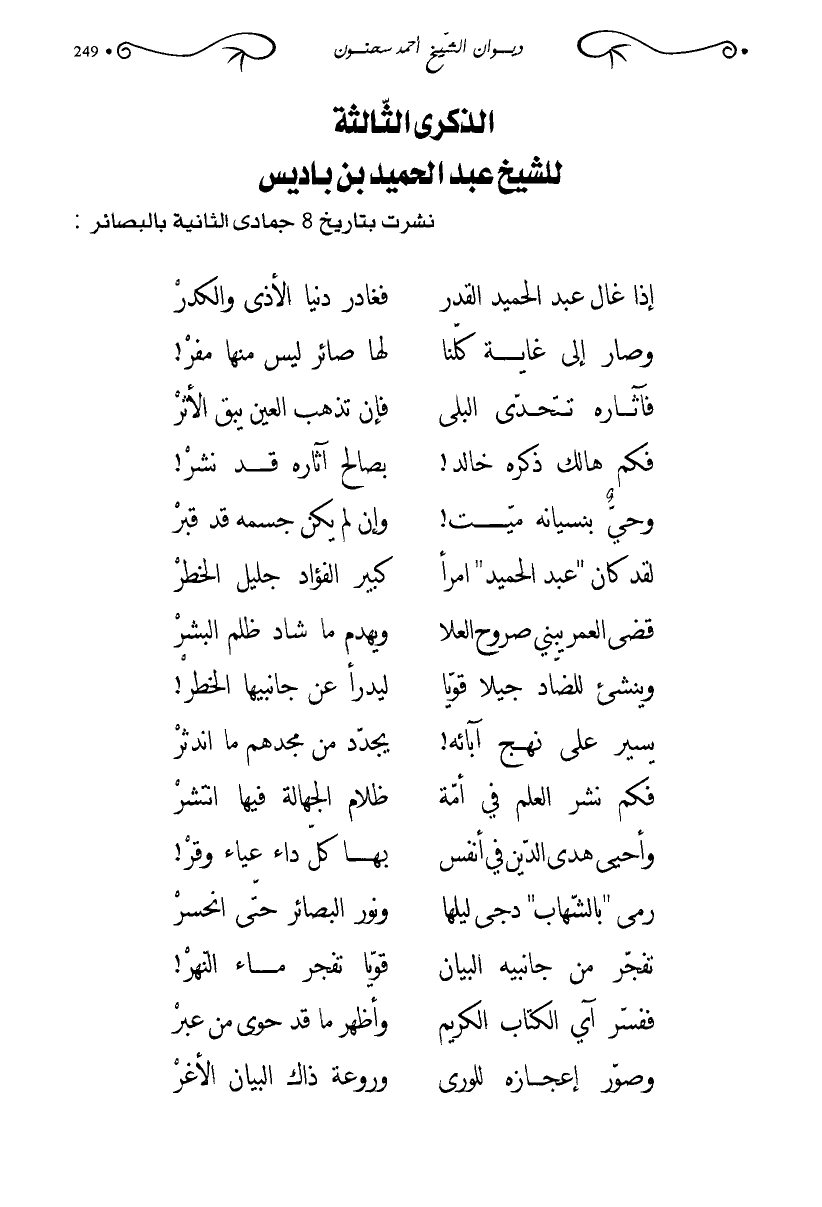 ديـوان الشّيخ أحمد سحنـون 249
الذكرى الثّالثة
للشيخ عبد الحميد بن باديس
نشرت بتاريخ 8 جمادى الثانية بالبصائر :
إذا غال عبد الحميد القدر فغادر دنيا الأذى والكدرْ
وصار إلى غايـة كلّنا لها صائر ليس منها مفرْ!
فآثـاره تتحدّى البلى فإن تذهب العين يبق الأثرْ
فكم هالك ذكره خالد! بصالح آثاره قـد نشرْ!
وحيٌّ بنسيانه ميّـت! وإن لم يكن جسمه قد قبرْ
لقد كان "عبد الحميد" امرأ كبير الفؤاد جليل الخطرْ
قضى العمر يبني صروح العلا ويهدم ما شاد ظلم البشرْ
وينشئ للضّاد جيلا قويّا ليدرأ عن جانبيها الخطرْ!
يسير على نهج آبائه! يجدّد من مجدهم ما اندثرْ
فكم نشر العلم في أمّة ظلام الجهالة فيها انتشرْ
وأحيى هدى الدّين في أنفس بهـا كلّ داء عياء وقرْ!
رمى "بالشّهاب" دجى ليلها ونور البصائر حتّى انحسرْ
تفجّر من جانبيه البيان قويّا تفجر مـاء النّهرْ!
ففسّر آي الكتاب الكريم وأظهر ما قد حوى من عبرْ
وصوّر إعجـازه للورى وروعة ذاك البيان الأغرْ